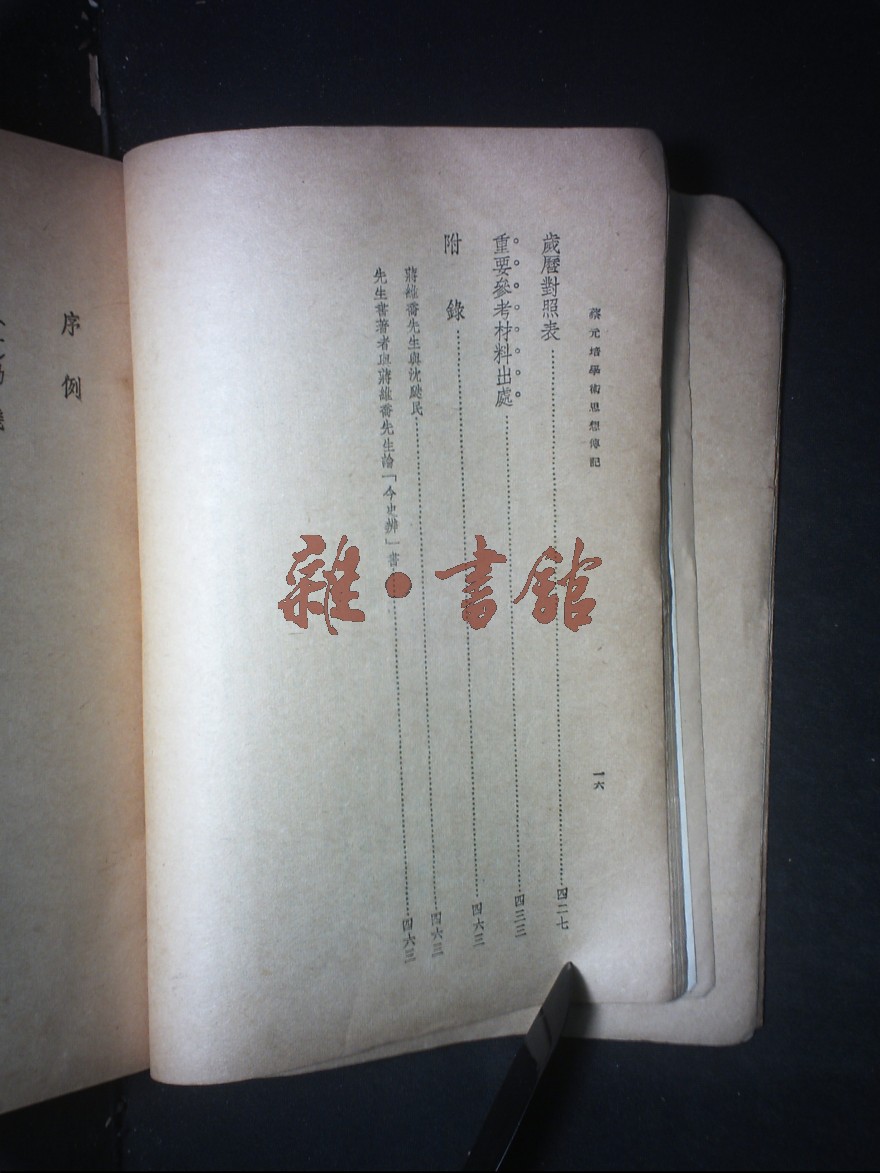 蔡元培學術思想傳記
一六
歲曆對照表……四二七
重要參考材料出處……四三三
附錄……四六三
蔣維喬先生與沈颷民……四六三
先生書著者與蔣維喬先生論「今史辨」書……四六三
序例
雜•書館